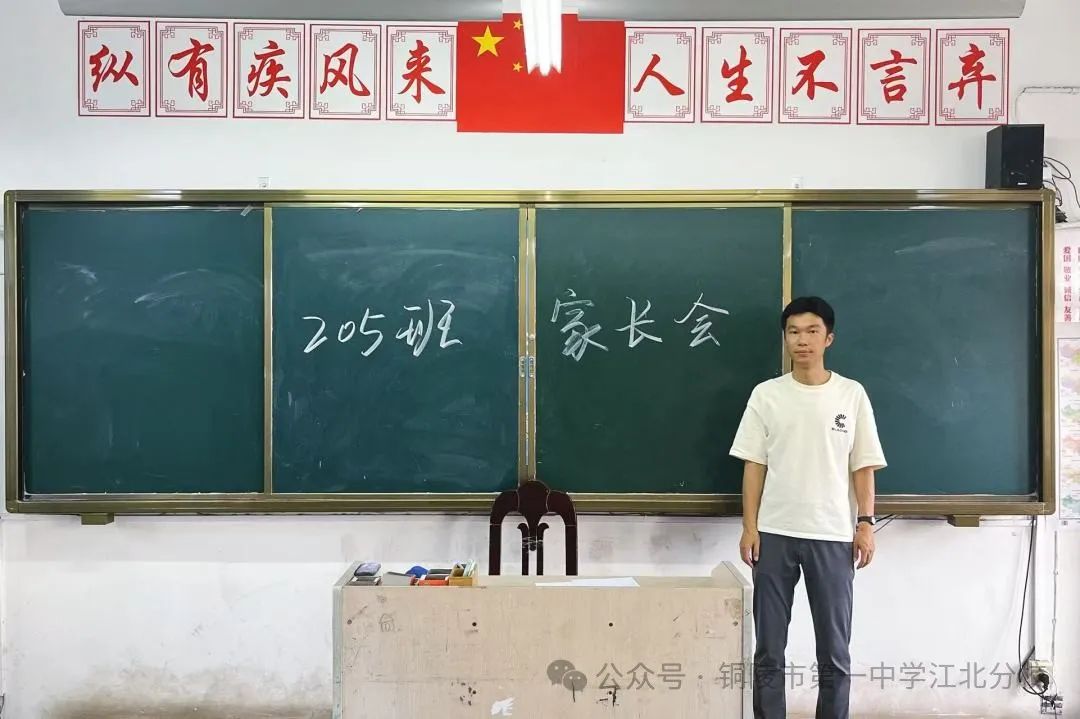 纵有疾风来 人生不言弃
205班 家长会
爱国 敬业 诚信 友善
公众号 · 铜陵市第一中学江北分